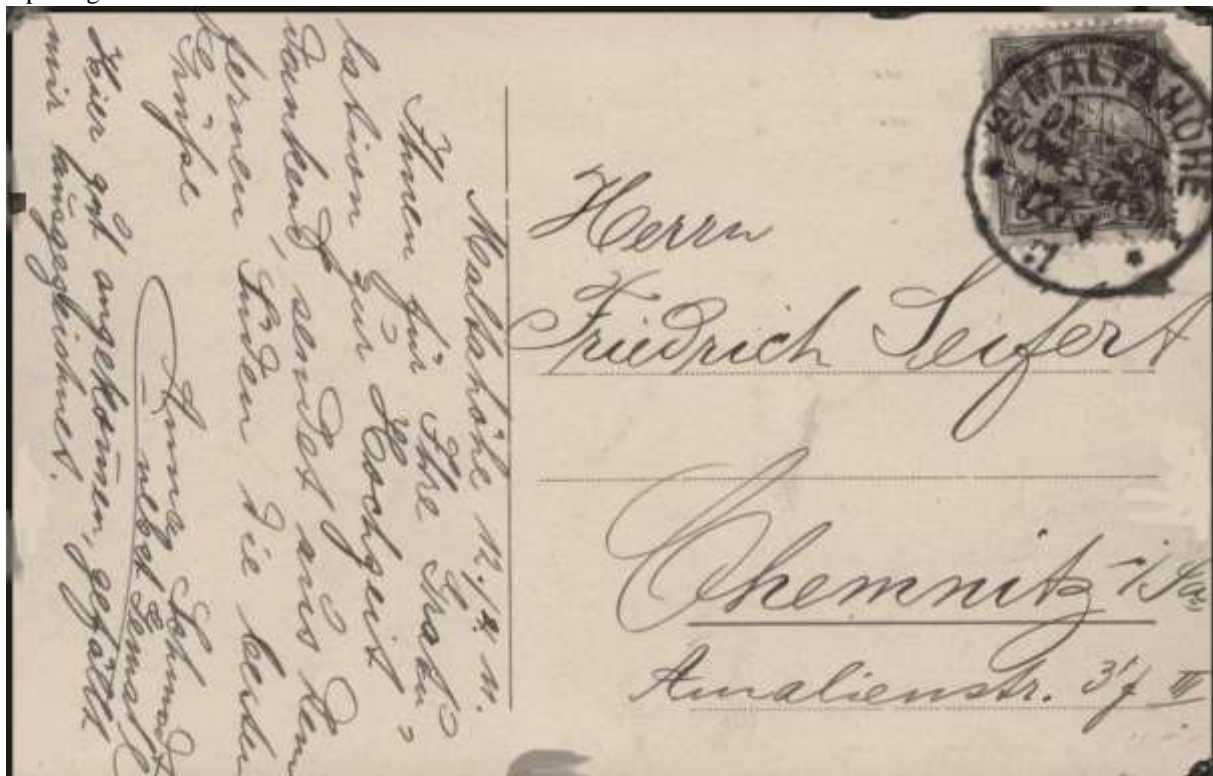 MALTAHÖHE
Herrn
Friedrich Seifert
Chemnitz i/Sa.
Amalienstr. III
Maltahöhe 12./4.
Ihnen für Ihre Gratu-
lation zur Hochzeit
dankend, sendet aus dem
fernen Süden die besten
Grüße
Schmidt
nebst Gemahl.
Hier gut angekom̄en, gefällt
mir ausgezeichnet.